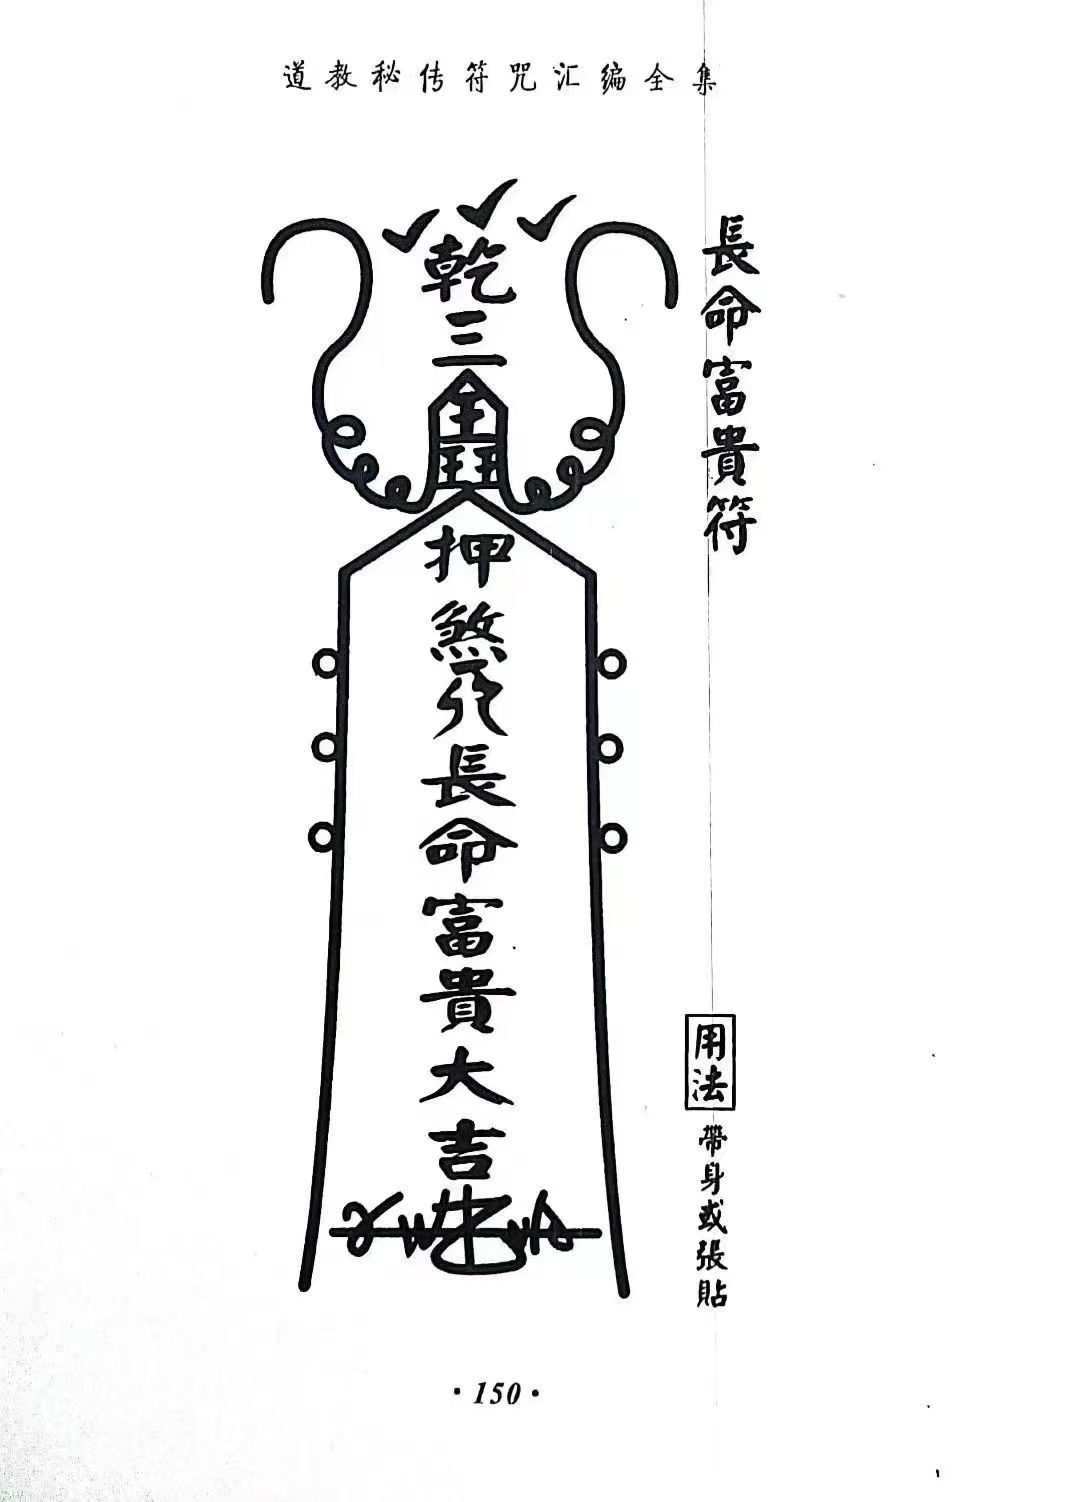 道教秘传符咒汇编全集
長命富貴符
乾三
押煞
長命富貴大吉
用法
帶身或張貼
·150·